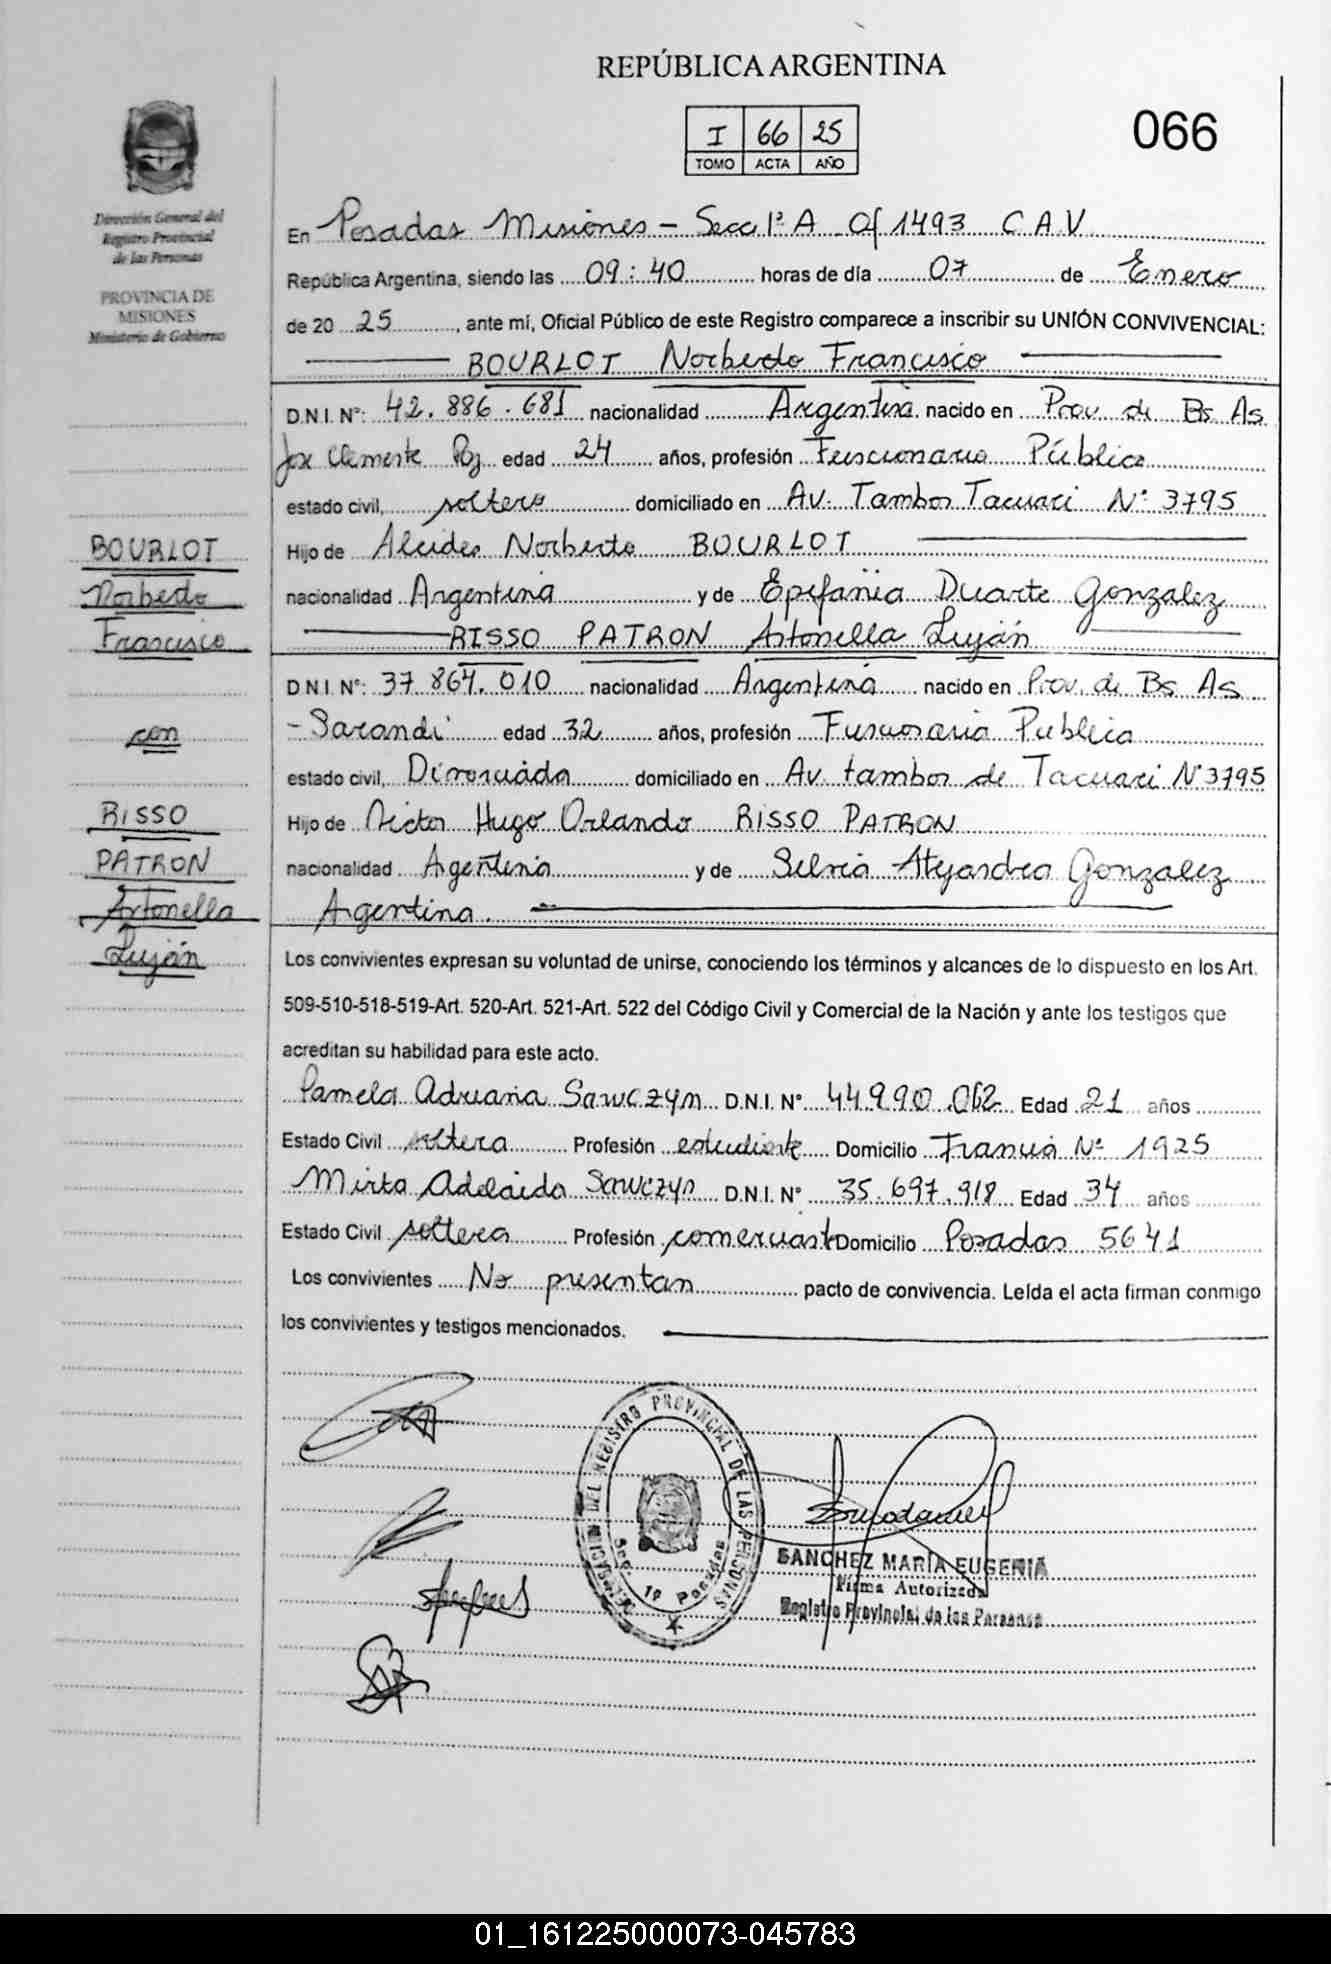 REPÚBLICA ARGENTINA
I 66 25
TOMO ACTA AÑO
066
Dirección General del
Registro Provincial
de las Personas
PROVINCIA DE
MISIONES
Ministerio de Gobierno
En Posadas Misiones - Secc 1ª A Of 1493 C.A.V.
República Argentina, siendo las 09:40 horas de día 07 de Enero
de 20 25, ante mí, Oficial Público de este Registro comparece a inscribir su UNIÓN CONVIVENCIAL:
BOURLOT Norberdo Francisco
D.N.I. Nº: 42.886.681 nacionalidad Argentina nacido en Prov. de Bs As
Jose Clemente Paz edad 24 años, profesión Funcionario Público
estado civil, soltero domiciliado en Av. Tambor Tacuari Nº 3795
Hijo de Alcides Norberto BOURLOT
nacionalidad Argentina y de Epifania Duarte Gonzalez
RISSO PATRON Antonella Luján
D.N.I. Nº: 37.864.010 nacionalidad Argentina nacido en Prov. de Bs As
- Sarandi edad 32 años, profesión Funcionaria Publica
estado civil, Divorciada domiciliado en Av. tambor de Tacuari Nº 3795
Hijo de Victor Hugo Orlando RISSO PATRON
nacionalidad Argentina y de Silvia Alejandra Gonzalez
Argentina.
BOURLOT
Norberdo
Francisco
con
RISSO
PATRON
Antonella
Luján
Los convivientes expresan su voluntad de unirse, conociendo los términos y alcances de lo dispuesto en los Art.
509-510-518-519-Art. 520-Art. 521-Art. 522 del Código Civil y Comercial de la Nación y ante los testigos que
acreditan su habilidad para este acto.
Pamela Adriana Sawczyn D.N.I. Nº 44.990.062 Edad 21 años
Estado Civil soltera Profesión estudiante Domicilio Nº 1925
Mirta Adelaida Sawczyn D.N.I. Nº 35.697.918 Edad 34 años
Estado Civil soltera Profesión comerciante Domicilio Posadas 5641
Los convivientes No presentan pacto de convivencia. Leída el acta firman conmigo
los convivientes y testigos mencionados.
DELEGACION DEL REGISTRO PROVINCIAL DE LAS PERSONAS
Sec. 1ª Posadas
SANCHEZ MARÍA EUGENIA
Firma Autorizada
Registro Provincial de las Personas
01_161225000073-045783